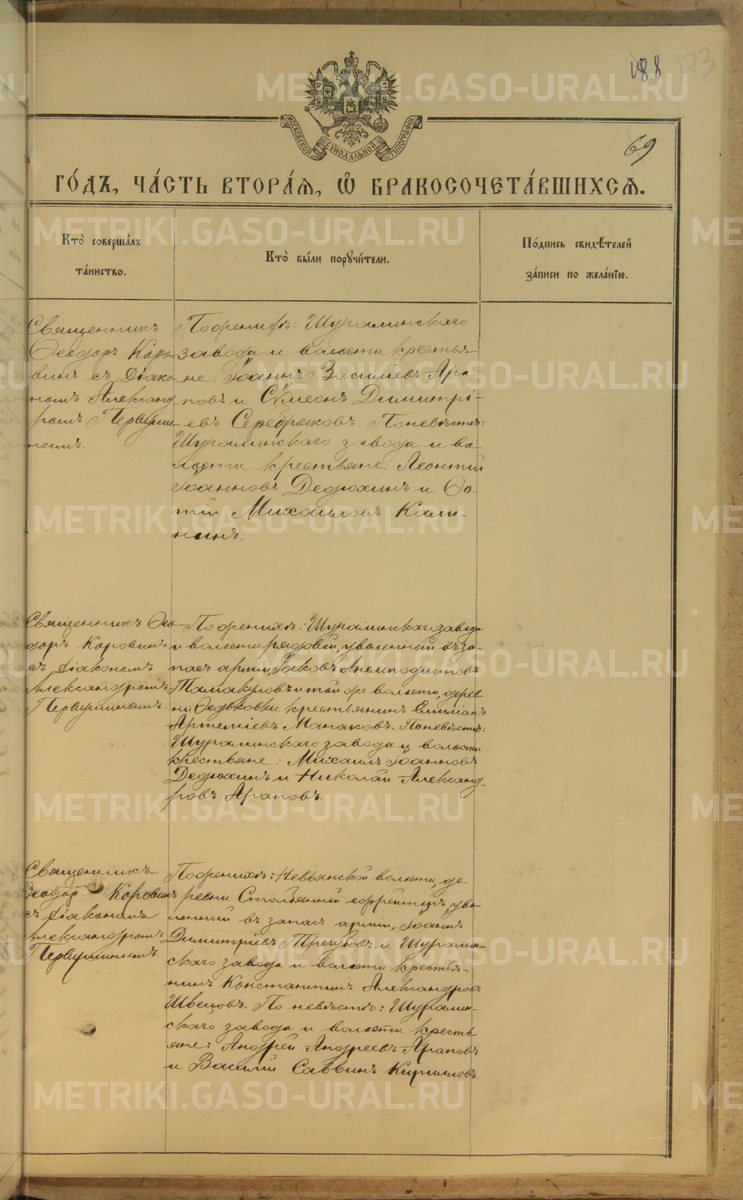 188 173
МОСКОВСКОЙ СѴНОДАЛЬНОЙ ТИПОГРАФІИ
69
ГО́ДЪ, ЧА́СТЬ ВТОРА́Я, Ѽ БРАКОСОЧЕТА́ВШИХСЯ.
Кто̀ соверша́лъ
та́инство.
Кто̀ бы́ли порꙋчи́тели.
По́дпись свидѣ́телей
за́писи по жела́нію.
Священникъ
Ѳеодоръ Коро-
винъ съ діако-
номъ Александ-
ромъ Первуши-
нымъ.
По женихѣ: Шуралинскаго
завода и волости крестья-
не: Іоаннъ Василіевъ Ара-
повъ и Сѵмеонъ Димитрі-
евъ Серебряковъ. По невѣстѣ:
Шуралинскаго завода и во-
лости крестьяне: Леонтій
Іоанновъ Дедюхинъ и Фо-
тій Михаиловъ Кали-
нинъ.
Священникъ Ѳео-
доръ Коровинъ
съ діакономъ
Александромъ
Первушинымъ.
По женихѣ: Шуралинскаго завода
и волости рядовой, уволенный въ за-
пасъ арміи, Іаковъ
и той же волости, дерев-
ни Федьковки крестьянинъ Емиліанъ
Артеміевъ Манаковъ. По невѣстѣ:
Шуралинскаго завода и волости
крестьяне: Михаилъ Іоанновъ
Дедюхинъ и Николай Александ-
ровъ Араповъ.
Священникъ
Ѳеодоръ Коровинъ
съ діакономъ
Александромъ
Первушинымъ.
По женихѣ: Невьянской волости, де-
ревни ефрейторъ, уво-
ленный въ запасъ арміи, Іоаннъ
Димитріевъ Трегубовъ и Шуралин-
скаго завода и волости крестья-
нинъ Константинъ Александровъ
Швецовъ. По невѣстѣ: Шуралин-
скаго завода и волости кресть-
яне: Андрей Андреевъ Араповъ
и Василій Саввинъ Кирилловъ.
METRIKI.GASO-URAL.RU